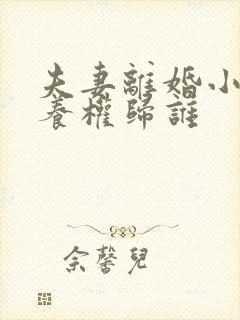 夫妻離婚小
養權歸誰
余馨兒